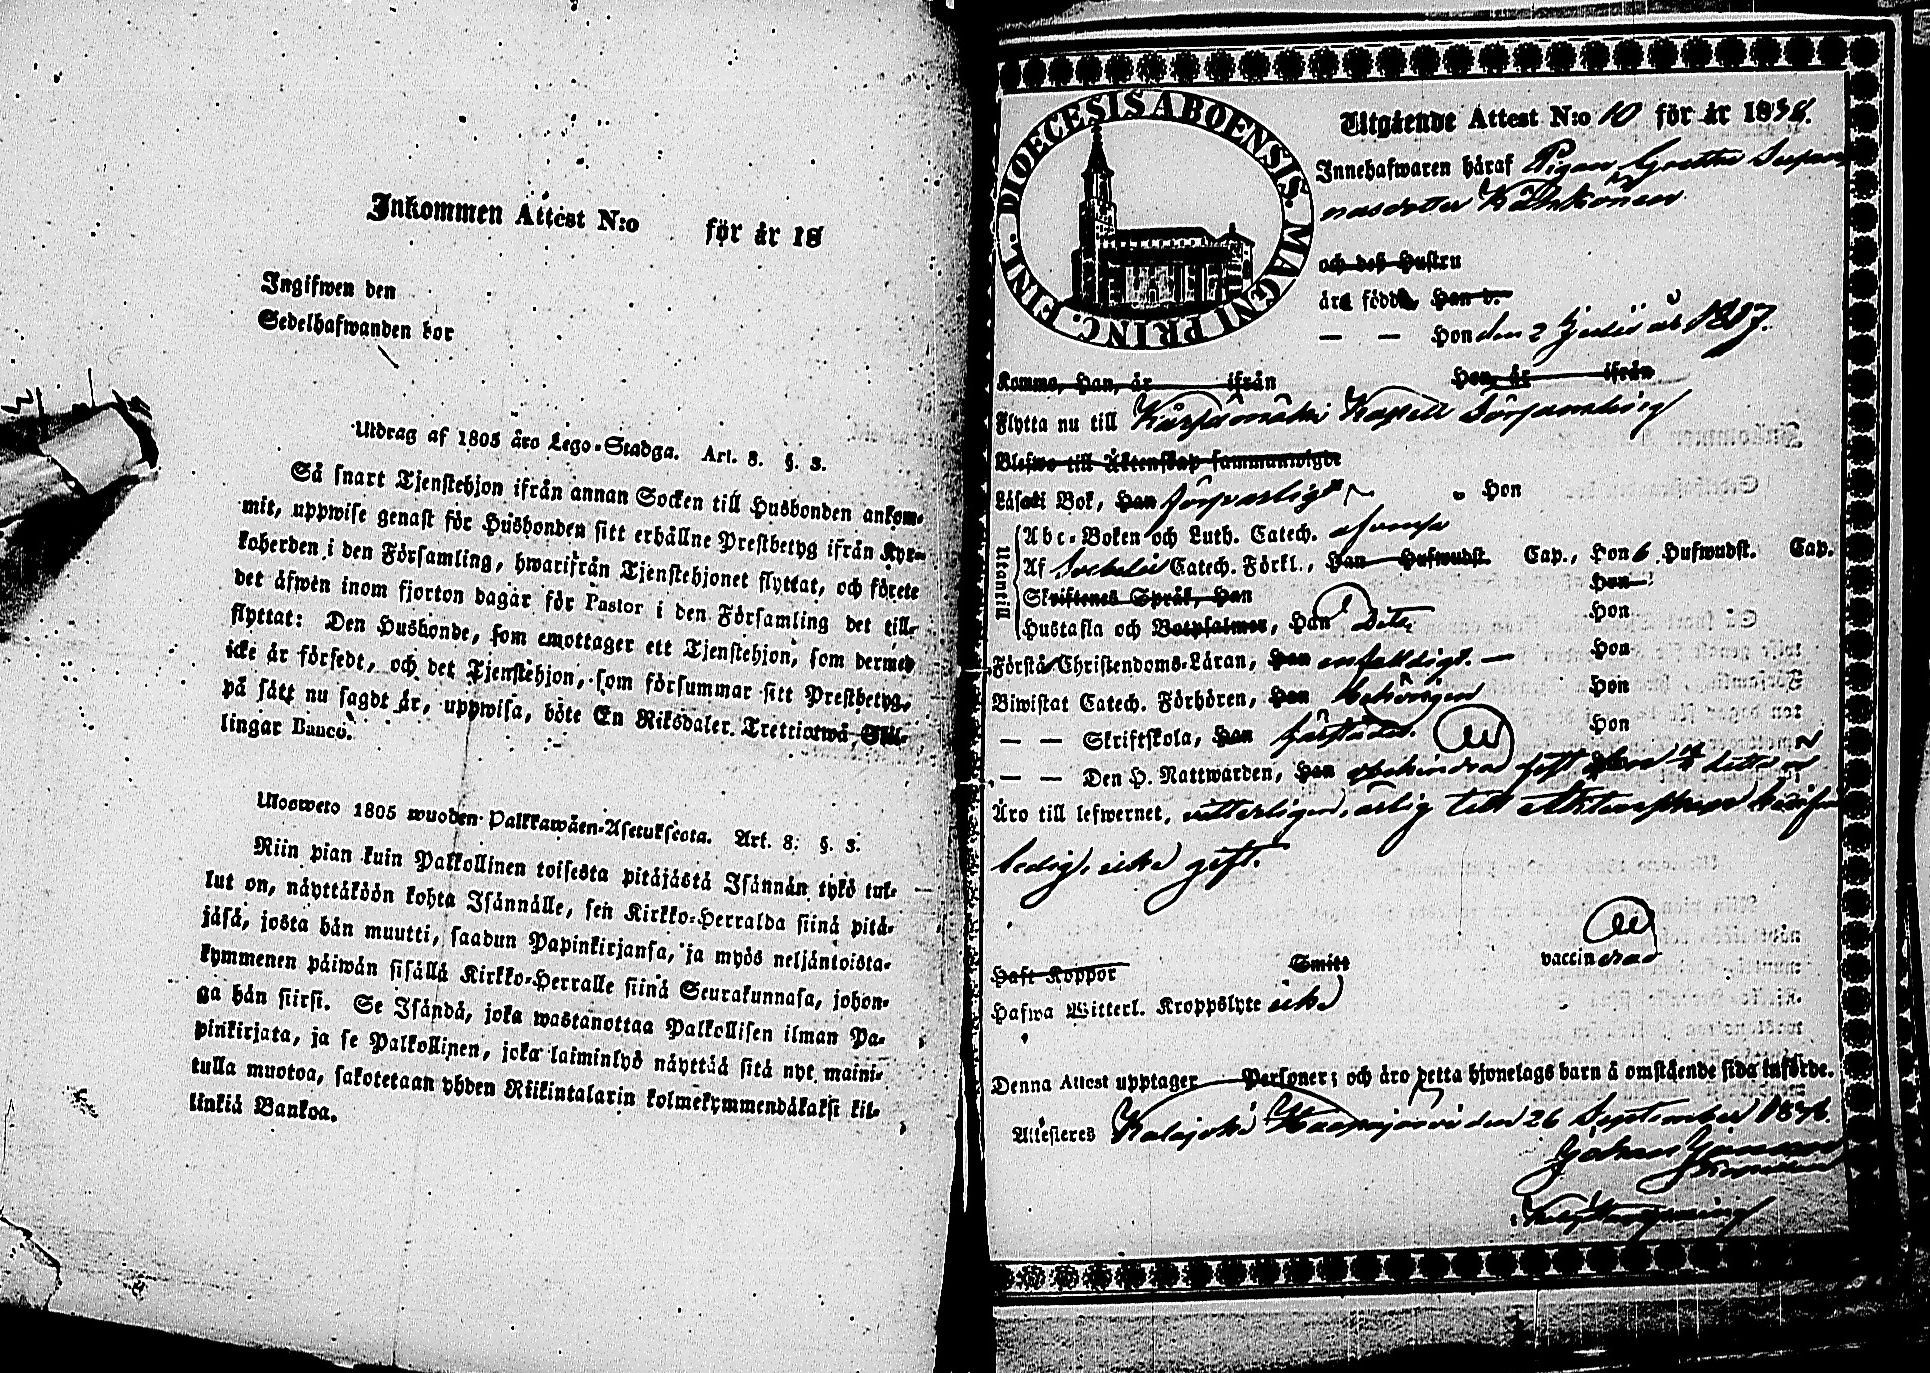 Inkommen Attest N:o för år 18
Ingifwen den
Sedelhafwanden bor
Utdrag af 1805 års Lego-Stadga. Art. 8. §. 3.
Så snart Tjenstehjon ifrån annan Socken till Husbonden ankom-
mit, uppwise genast för Husbonden sitt erhållne Prestbetyg ifrån Kyr-
koherden i den Församling, hwarifrån Tjenstehjonet flyttat, och förete
det äfwen inom fjorton dagar för Pastor i den Församling det till-
flyttat: Den Husbonde, som emottager ett Tjenstehjon, som dermed
icke är försedt, och det Tjenstehjon, som försummar sitt Prestbetyg,
på sätt nu sagdt är, uppwisa, böte En Riksdaler Trettiotwå Skil-
lingar Banco.
Ulosweto 1805 wuoden Palkkawäen-Asetuksesta. Art. 8: §. 3.
Niin pian kuin Palkollinen toisesta pitäjästä Isännän tykö tul-
lut on, näyttäköön kohta Isännälle, sen Kirkko-Herralda siinä pitä-
jäsä, josta hän muutti, saadun Papinkirjansa, ja myös neljäntoista-
kymmenen päiwän sisällä Kirkko-Herralle siinä Seurakunnasa, johon-
ga hän siirsi. Se Isändä, joka wastanottaa Palkollisen ilman Pa-
pinkirjata, ja se Palkollinen, joka laiminlyö näyttää sitä nyt maini-
tulla muotoa, sakotetaan yhden Riikintalarin kolmekymmendäkaksi kil-
linkiä Bankoa.
DIOECESIS ABOENSIS. MAGNI PRINC. FINL.
Utgående Attest N:o 10 för år 1838.
Innehafwaren häraf Pigan Greta
dotter
och deß Hustru
äro födde, Han d.
— — Hon den 2 Julii år 1817.
Komme, Han, år ifrån Hon, år ifrån
Flytta nu till Kärsämäki Kapell Församling
Blefwo till Äktenskap sammanwigde
Läsa i Bok, Han förswarligt Hon
Utantill
Abc-Boken och Luth. Catech.
Af Svebelii Catech. Förkl., Han Hufwudst. Cap., Hon 6 Hufwudst. Cap.
Skriftenes Språk, Han Hon
Hustafla och Botpsalmer, Han Dito Hon
Förstå Christendoms-Läran, Han enfaldigt. — Hon
Biwistat Catech. Förhören, Han behörigen Hon
— — Skriftskola, Han Hon
— — Den H. Nattwarden, Han obehindrad
Äro till lefwernet, witterligen, ärlig till Äktenskap
ledig, icke gift.
Haft Koppor Smitt vaccinerad
Hafwa Witterl. Kroppslyte icke
Denna Attest upptager Personer; och äro detta hjonelags barn å omstående sida införde.
Attesteres Kalajoki Haapajärvi den 26 September 1838.
Johan